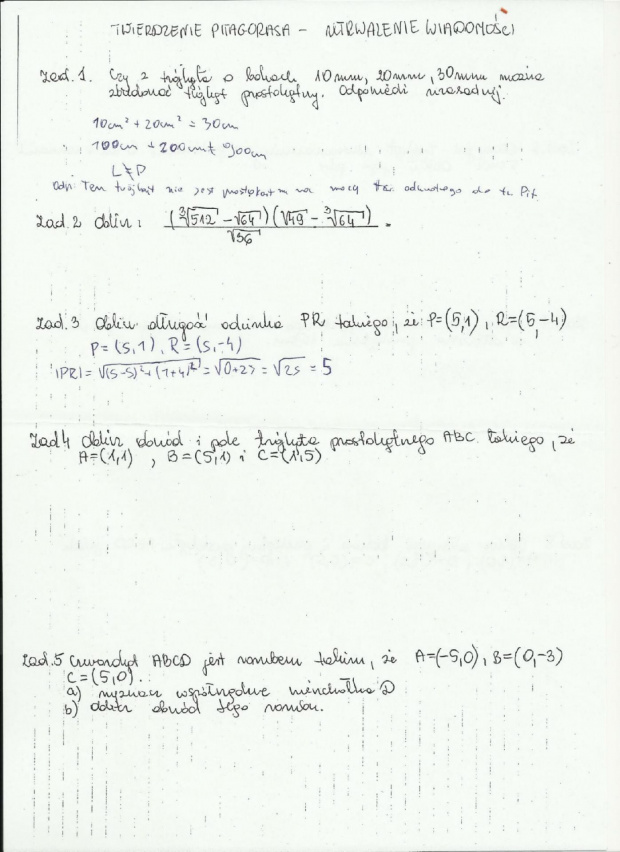 TWIERDZENIE PITAGORASA – UTRWALENIE WIADOMOŚCI
Zad. 1. Czy z trójkąta o bokach 10mm, 20mm, 30mm można
zbudować trójkąt prostokątny. Odpowiedź uzasadnij.
10cm² + 20cm² = 30cm
100cm + 200cm ≠ 900cm
L ≠ P
Odp: Ten trójkąt nie jest prostokątnym na mocy tw. odwrotnego do tw. Pit.
Zad. 2 Oblicz: (∛512 – √64)(√49 – ∛64) / √36 =
Zad. 3 Oblicz długość odcinka PR takiego, że P=(5,1), R=(5,–4)
P=(5,1), R=(5,-4)
|PR|=√(5-5)²+(1+4)² = √0+25 = √25 = 5
Zad 4 Oblicz obwód i pole trójkąta prostokątnego ABC takiego, że
A=(1,1) , B=(5,1) i C=(1,5)
Zad. 5 Czworokąt ABCD jest rombem takim, że A=(–5,0), B=(0,–3)
C=(5,0).
a) wyznacz współrzędne wierzchołka D
b) oblicz obwód tego rombu.